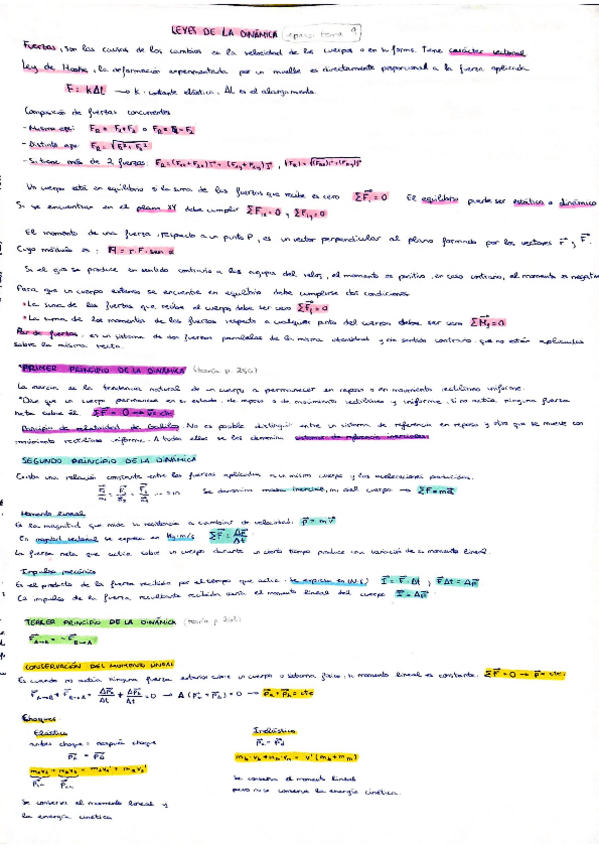 LEYES DE LA DINÁMICA (repaso tema 9)
Fuerzas, son las causas de los cambios en la velocidad de los cuerpos o en su forma. Tiene carácter vectorial
Ley de Hooke, la deformación experimentada por un muelle es directamente proporcional a la fuerza aplicada
F = kΔL → k: constante elástica, ΔL es el alargamiento.
Composición de fuerzas concurrentes
- Misma
- Distinta
- Si tiene más de 2 fuerzas:
Un cuerpo está en equilibrio si la suma de las fuerzas que recibe es cero ΣF⃗i = 0 El equilibrio puede ser estático o dinámico
Si se encuentran en el plano XY debe cumplir
El momento de una fuerza, respecto a un punto P, es un vector perpendicular al plano formado por los vectores r⃗ y F⃗.
Cuyo módulo es: M = r·F·sen α
Si el giro se produce en sentido contrario a las agujas del reloj, el momento es positivo, en caso contrario, el momento es negativo
Para que un cuerpo extenso se encuentre en equilibrio debe cumplirse dos condiciones
• La suma de las fuerzas que recibe el cuerpo debe ser cero ΣF⃗i = 0
• La suma de los momentos de las fuerzas respecto a cualquier punto del cuerpo debe ser cero ΣM⃗i = 0
Par de fuerzas: es un sistema de dos fuerzas paralelas de la misma intensidad y de sentido contrario que no están aplicadas
sobre la misma recta.
PRIMER PRINCIPIO DE LA DINÁMICA (teoría p.
La inercia es la tendencia natural de un cuerpo a permanecer en reposo o en movimiento rectilíneo uniforme.
que un cuerpo permanece en su estado de reposo o de movimiento rectilíneo y uniforme, si no actúa ninguna fuerza
neta sobre él. ΣF⃗ = 0 → v⃗ = cte
Principio de relatividad de Galileo. No es posible distinguir entre un sistema de referencia en reposo y otro que se mueve con
movimiento rectilíneo uniforme. A todos ellos se les denomina sistemas de referencia inerciales.
SEGUNDO PRINCIPIO DE LA DINÁMICA
una relación constante entre las fuerzas aplicadas a un mismo cuerpo y las aceleraciones producidas.
= m Se denomina masa inercial, m, del cuerpo → ΣF⃗ = ma⃗
Momento lineal
Es la magnitud que mide su resistencia a cambiar de velocidad: p⃗ = mv⃗
En magnitud vectorial se expresa en kg·m/s ΣF⃗ = Δp⃗/Δt
La fuerza neta que actúa sobre un cuerpo durante un cierto tiempo produce una variación de su momento lineal.
Impulso mecánico
Es el producto de la fuerza recibida por el tiempo que actúa. Se expresa en (N·s) I⃗ = F⃗·Δt ; F⃗Δt = Δp⃗
El impulso de la fuerza resultante recibida el momento lineal del cuerpo I⃗ = Δp⃗
TERCER PRINCIPIO DE LA DINÁMICA (teoría p.
F⃗A→B = -F⃗B→A
CONSERVACIÓN DEL MOMENTO LINEAL
Es cuando no actúa ninguna fuerza exterior sobre un cuerpo o sistema físico, su momento lineal es constante. ΣF⃗ = 0 → p⃗ = cte
Choques
Elástico
antes choque = después choque
Se conserva el momento lineal y
la energía cinética
Inelástico
Se conserva el momento lineal
pero no se conserva la energía cinética.